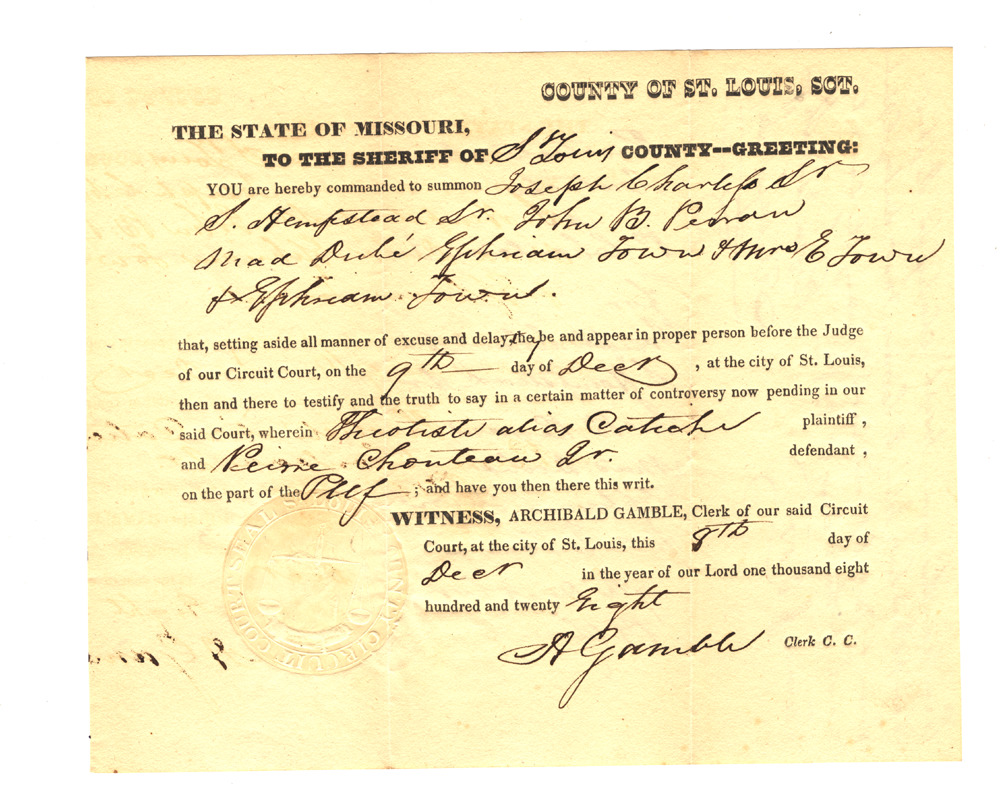 COUNTY OF ST. LOUIS, SCT.
THE STATE OF MISSOURI,
TO THE SHERIFF OF St Louis COUNTY--GREETING:
YOU are hereby commanded to summon Joseph Charless Sr
S. Hempstead Sr. John B. Peron
Mad Dubé Ephriam Town & Mrs E Town
& Ephriam Town.
that, setting aside all manner of excuse and delay, they be and appear in proper person before the Judge
of our Circuit Court, on the 9th day of Decr, at the city of St. Louis,
then and there to testify and the truth to say in a certain matter of controversy now pending in our
said Court, wherein Theotiste alias Catiche plaintiff,
and Pierre Chouteau Jr. defendant,
on the part of the Pltf; and have you then there this writ.
WITNESS, ARCHIBALD GAMBLE, Clerk of our said Circuit
Court, at the city of St. Louis, this 8th day of
Decr in the year of our Lord one thousand eight
hundred and twenty Eight
A Gamble Clerk C. C.